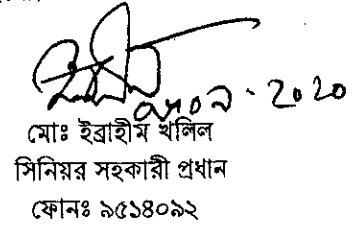 ২০২০
মোঃ ইব্রাহীম খলিল
সিনিয়র সহকারী প্রধান
ফোনঃ ৯৫১৪০৯২